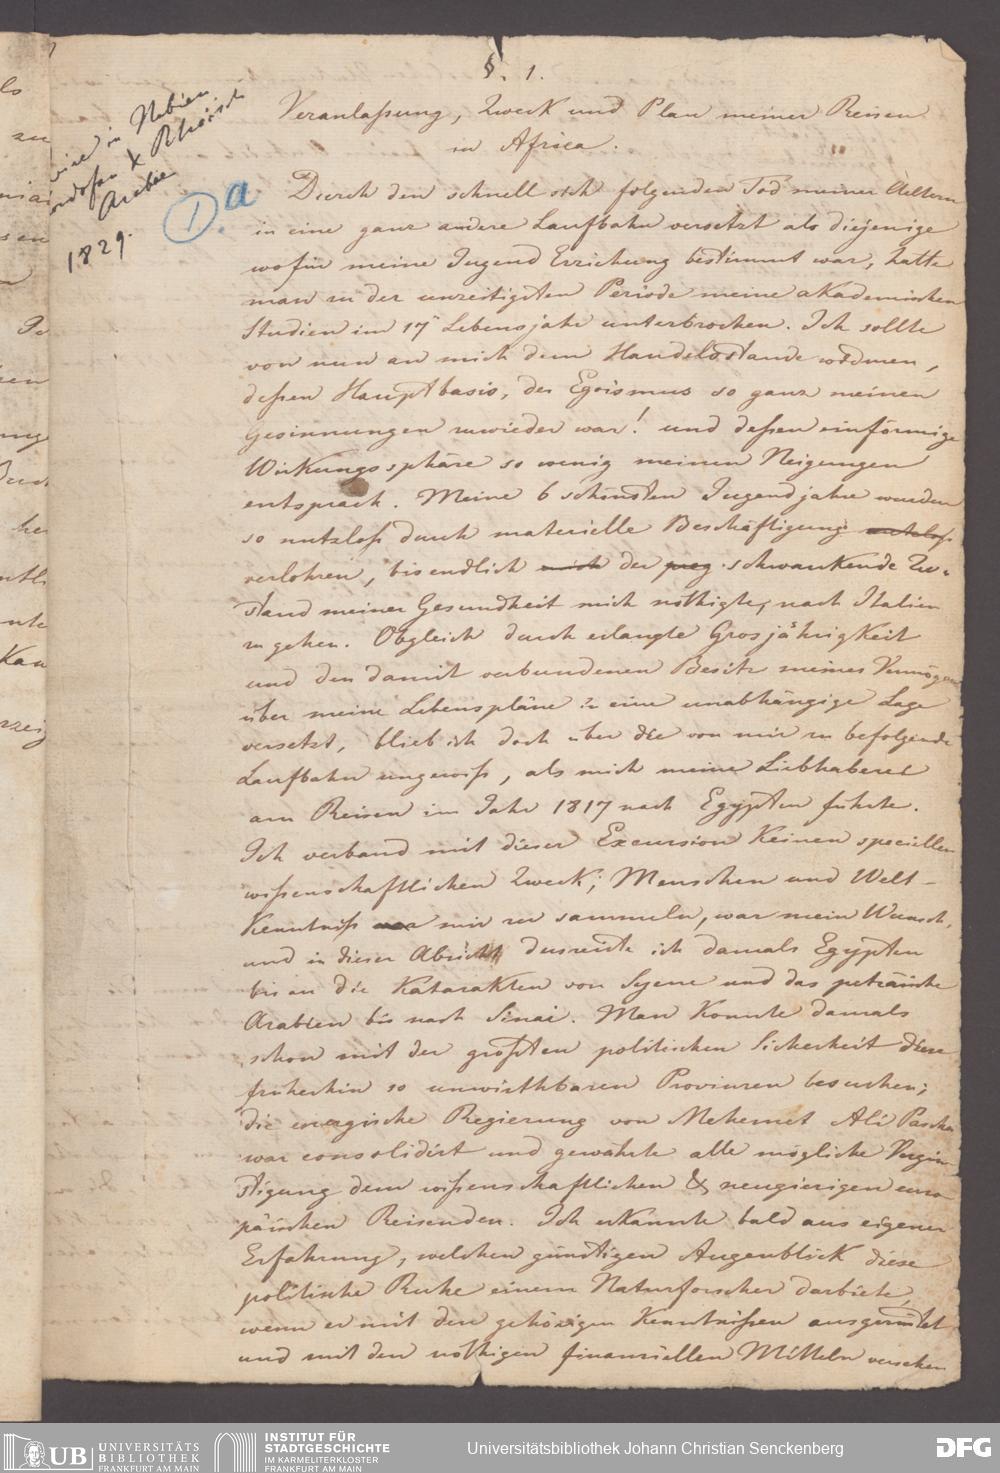 §. 1.
Veranlaßung, Zweck und Plan meiner Reisen
in Africa.
in Nubien
& 
Arabie
1829.
1). a
Durch den schnell sich folgenden Tod meiner Aeltern
in eine ganz andere Laufbahn versetzt als diejenige
wofür meine Jugend Erziehung bestimmt war, hatte
man in der unzeitigsten Periode meine akademischen
Studien im 17ⁿ Lebensjahr unterbrochen. Ich sollte
von nun an mich dem Handelsstande widmen,
deßen Hauptbasis, der Egoismus so ganz meinen
Gesinnungen zuwieder war! und deßen einförmige
Wirkungssphäre so wenig meinen Neigungen
entsprach. Meine 6 schönsten Jugendjahre wurden
so nutzloß durch materielle Beschäftigung nutzlos
verlohren, bis endlich mich der schwankende Zu-
stand meiner Gesundheit mich nöthigte, nach Italien
zu gehen. Obgleich durch erlangte Grosjährigkeit
und den damit verbundenen Besitz meines Vermögens
über meine Lebenspläne in eine unabhängige Lage
versetzt, blieb ich doch über die von mir zu befolgende
Laufbahn ungewiß, als mich meine Liebhaberei
am Reisen im Jahr 1817 nach Egypten führte.
Ich verband mit dieser Excursion keinen speciellen
wißenschaftlichen Zweck; Menschen und Welt-
Kenntniß mir zu sammeln, war mein Wunsch,
und in dieser Absicht durreiste ich damals Egypten
bis an die Katarakten von Syene und das peträische
Arabien bis nach Sinai. Man konnte damals
schon mit der größten politischen Sicherheit diese
früherhin so unwirthbaren Provinzen besuchen;
die energische Regierung von Mehemet Ali Pascha
war consolidirt und gewährte alle mögliche Vergün-
stigung dem wißenschaftlichen & neugierigen euro-
päischen Reisenden. Ich erkannte bald aus eigener
Erfahrung, welchen günstigen Augenblick diese
politische Ruhe einem Naturforscher darbiete,
wenn er mit den gehörigen Kenntnißen ausgerüstet
und mit den nöthigen finanziellen Mitteln versehen
UB UNIVERSITÄTS
BIBLIOTHEK
FRANKFURT AM MAIN
INSTITUT FÜR
STADTGESCHICHTE
IM KARMELITERKLOSTER
FRANKFURT AM MAIN
Universitätsbibliothek Johann Christian Senckenberg
DFG